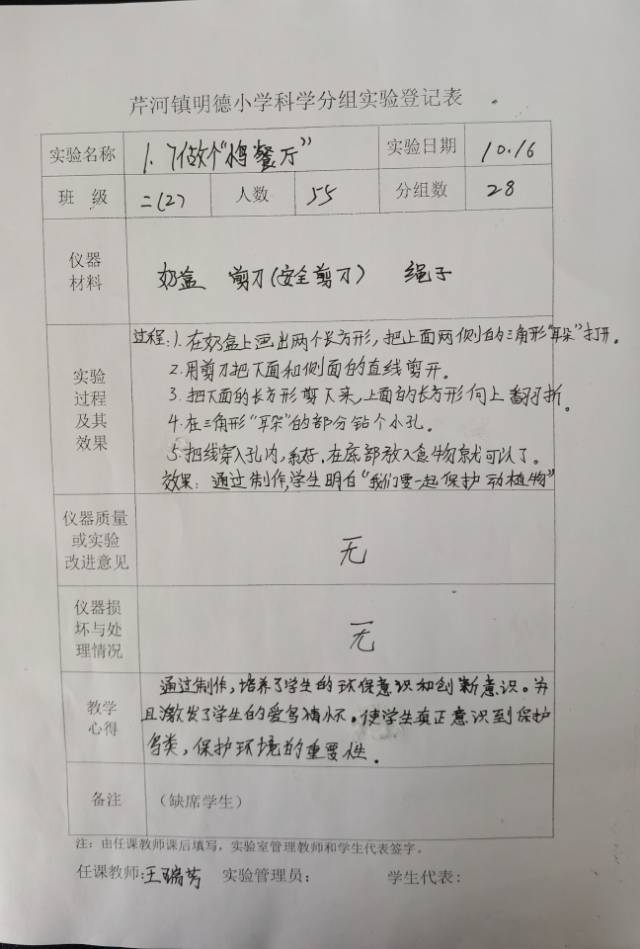 芹河镇明德小学科学分组实验登记表
实验名称 1. 做个“鸟餐厅” 实验日期 10.16
班 级 二(2) 人数 55 分组数 28
仪器材料 奶盒 剪刀(安全剪刀) 绳子
实验过程及其效果
过程:1.在奶盒上画出两个长方形,把上面两侧的三角形“耳朵”打开。
2.用剪刀把下面和侧面的直线剪开。
3.把下面的长方形剪下来,上面的长方形向上翻折。
4.在三角形“耳朵”的部分钻个小孔。
5.把线穿入孔内,系好.在底部放入食物就可以了。
效果:通过制作,学生明白“我们要一起保护动植物”
仪器质量或实验改进意见 无
仪器损坏与处理情况 无
教学心得
通过制作,培养了学生的环保意识和创新意识。并
且激发了学生的爱鸟情怀,使学生真正意识到保护
鸟类,保护环境的重要性.
备注 (缺席学生)
注:由任课教师课后填写,实验室管理教师和学生代表签字。
任课教师:王瑞芳 实验管理员: 学生代表: